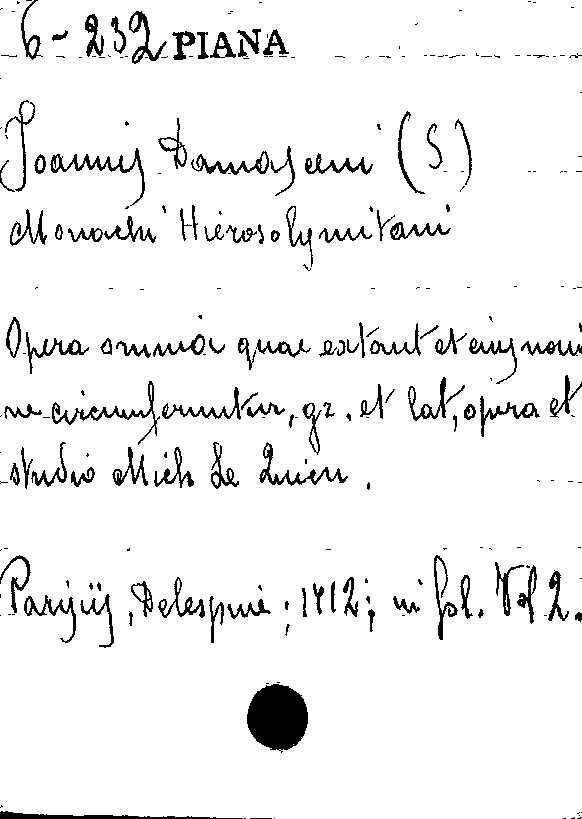 6-232 PIANA
Joannis Damasceni (S)
Monachi Hierosolymitani
Opera omnia quae extant et eius nomi
ne circumferuntur, gr. et lat, opera et
studio Mich Le Quien.
Parisiis, Delespine; 1712; in fol. Vol 2.